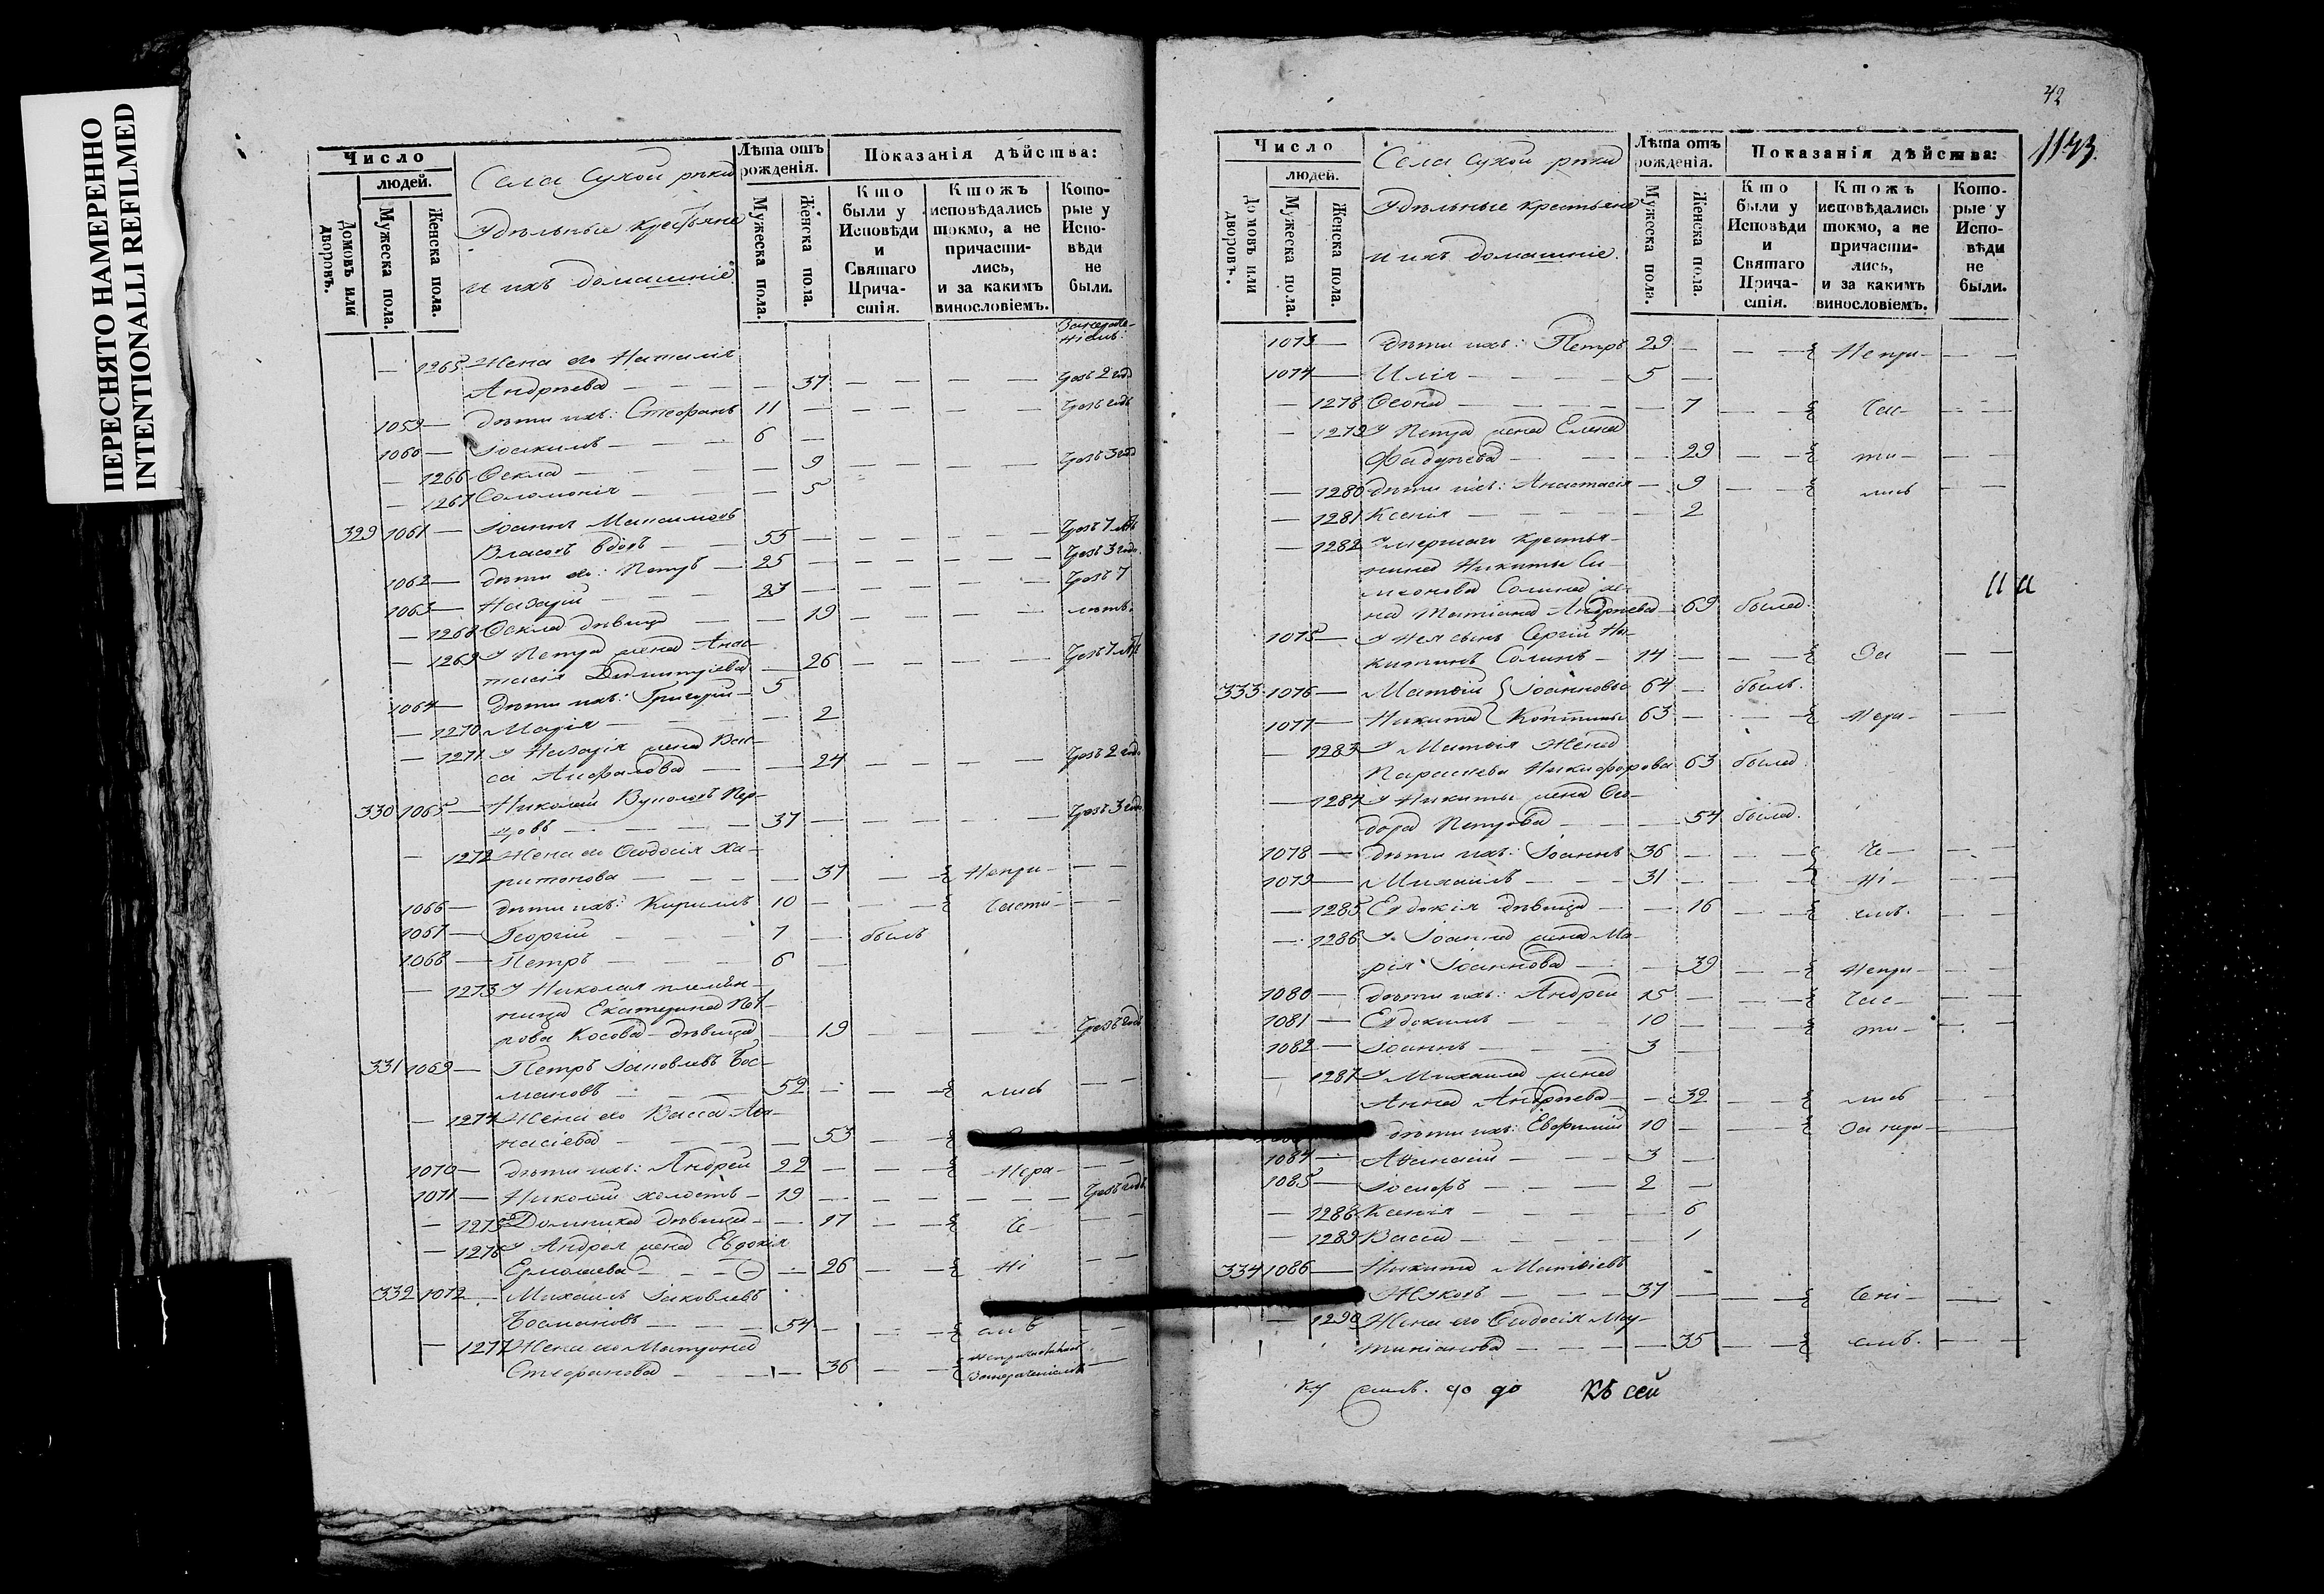 ПЕРЕСНЯТО НАМЕРЕННО
INTENTIONALLI REFILMED
Число
людей.
Домовъ или дворовъ.
Мужеска пола.
Женска пола.
Села Сухой рѣки
Удѣльные крестьяне
и ихъ домашніе.
Лѣта отъ рожденія.
Мужеска пола.
Женска пола.
Показанія дѣйства:
Кто были у Исповѣди и Святаго Причастія.
Ктожъ исповѣдались токмо, а не причастились, и за какимъ винословіемъ.
Которые у Исповѣди не были.
1265 Жена его Наталія
Андрѣева 37 Чрезъ 2 года
1059 дѣти ихъ: Стефанъ 11 Чрезъ годъ
1060 Іоакимъ 6
1266 Ѳекла 9 Чрезъ 3 года
1267 Соломонія 5
329 1061 Іоаннъ Максимовъ
Власовъ вдовъ 55 Чрезъ 7 лѣтъ
1062 дѣти его: Петръ 25 Чрезъ 3 года
1063 Назарій 23 Чрезъ 7
1268 Ѳекла дѣвица 19 лѣтъ.
1269 У Петра жена Анас-
тасія Димитріева 26 Чрезъ 7 лѣтъ
1064 дѣти ихъ: Григорій 5
1270 Марія 2
1271 У Назарія жена Вас-
са 24 Чрезъ 2 года
330 1065 Николай
37 Чрезъ 3 года
1272 Жена его Ѳеодосія Ха-
ритонова 37 Непри-
1066 дѣти ихъ: Кириллъ 10 части-
1067 Георгій 7 былъ
1068 Петръ 6
1273 У Николая племян-
ница Екатерина Пет-
рова Косова дѣвица 19 Чрезъ годъ
331 1069 Петръ Іаковлевъ Бос-
мановъ 52 лись
1274 Жена его Васса Аѳа-
насіева 53
1070 дѣти ихъ: Андрей 22 Нера-
1071 Николай холостъ 19 Чрезъ годъ
1275 Домника дѣвица 17 че-
1276 У Андрея жена Евдокія
Ермолаева 26 ні
332 1072 Михаилъ Іаковлевъ
Босмановъ 54 емъ
1277 Жена его Матрона
Стефанова 36
42
1143.
Число
людей.
Домовъ или дворовъ.
Мужеска пола.
Женска пола.
Села Сухой рѣки
Удѣльные крестьяне
и ихъ домашніе.
Лѣта отъ рожденія.
Мужеска пола.
Женска пола.
Показанія дѣйства:
Кто были у Исповѣди и Святаго Причастія.
Ктожъ исповѣдались токмо, а не причастились, и за какимъ винословіемъ.
Которые у Исповѣди не были.
1073 дѣти ихъ: Петръ 29 Непри-
1074 Илія 5
1278 Ѳеона 7 час-
1279 У Петра жена Елена
Фадѣева 29 ти-
1280 дѣти ихъ: Анастасія 9 лись
1281 Ксенія 2
1282 Умершаго крестья-
нина Никиты Си-
меонова Солина же-
на Татіана Андрѣева 69 была.
1075 У нея сынъ Сергій Ни-
китинъ Солинъ 14 За
333 1076 Матѳій Іоанновы 64 былъ.
1077 Никита 63 Нера-
1283 У Матѳія жена
Параскева Никифорова 63 была
1284 У Никиты жена Ѳео-
дора Петрова 54 была.
1078 дѣти ихъ: Іоаннъ 36 че-
1079 Михаилъ 31 ні-
1285 Евдокія дѣвица 16 емъ.
1286 У Іоанна жена Ма-
рія Іоаннова 39 Непри-
1080 дѣти ихъ: Андрей 15 час-
1081 Евдокимъ 10 ти-
1082 Іоаннъ 3
1287 У Михаила жена
Анна Андрѣева 32 лись
дѣти ихъ: Евфимій 10 За нера-
1084 Аѳанасій 3
1085 Іосифъ 2
1288 Ксенія 6
1289 Васса 1
334 1086 Никита Матѳіевъ
Жуковъ 37 чені-
1290 Жена его Ѳеодосія Мар-
тиніанова 35 емъ.
къ сей